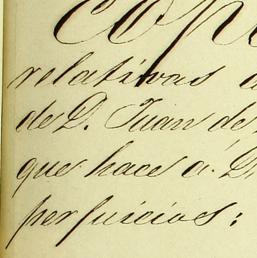 Cop
relativas a
de D. Juan de
que hace á D.
perjuicios: